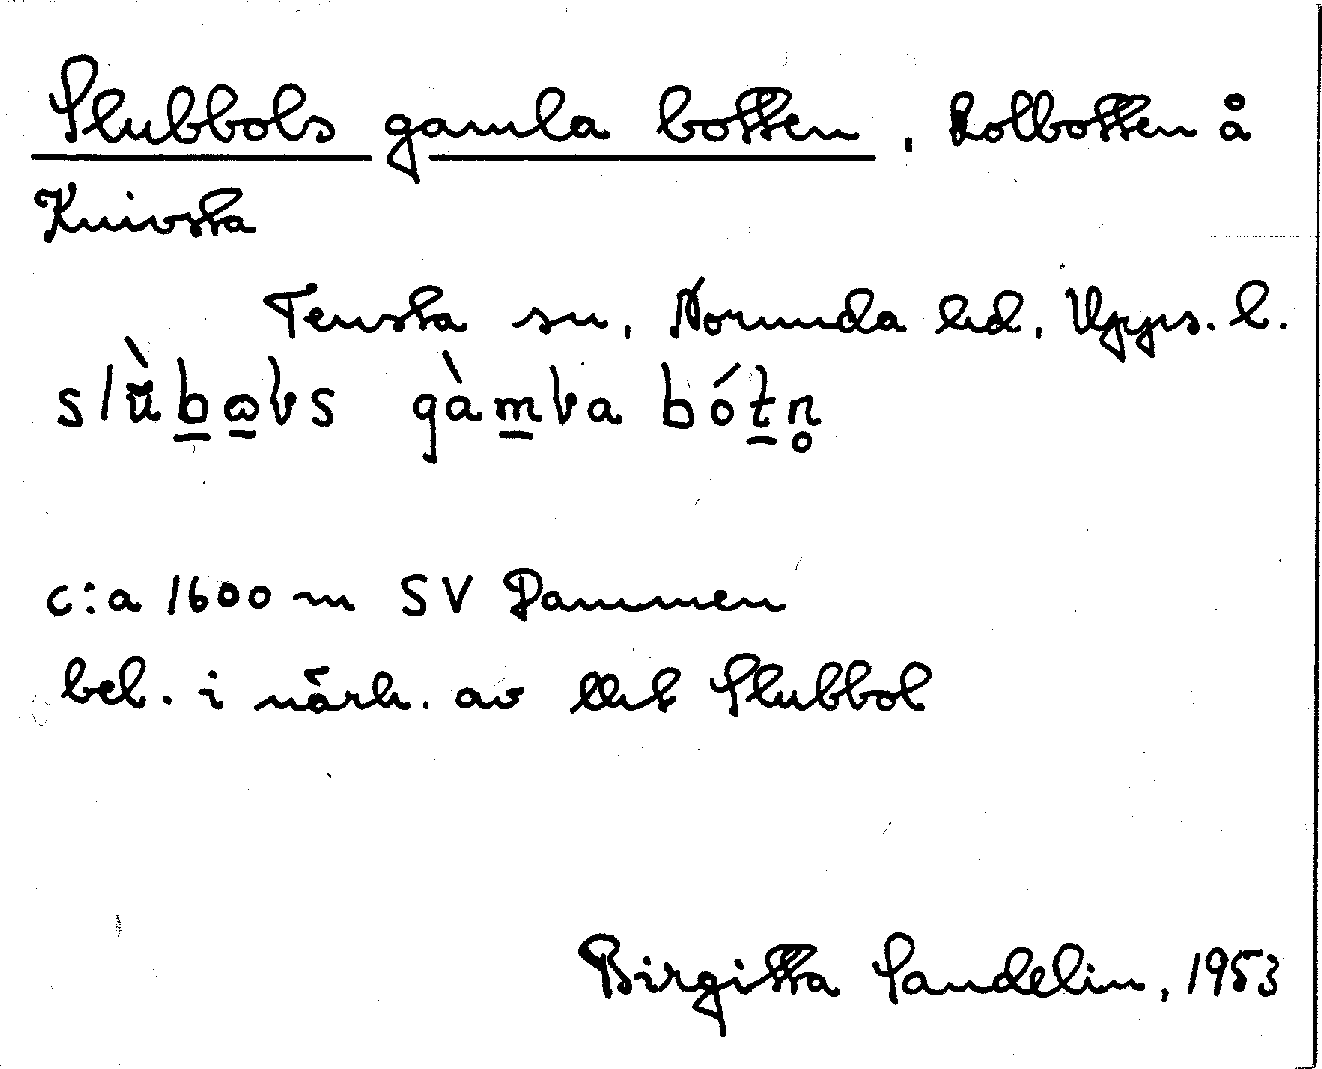 Slubbols gamla botten, Kolbotten å
Knivsta
Tensta sn, Norunda hd, Upps. l.
slu̇̀bωls gàmla bótn̥
c:a 1600 m SV Dammen
bel. i närh. av Ort Slubbol
Birgitta Sandelin, 1953